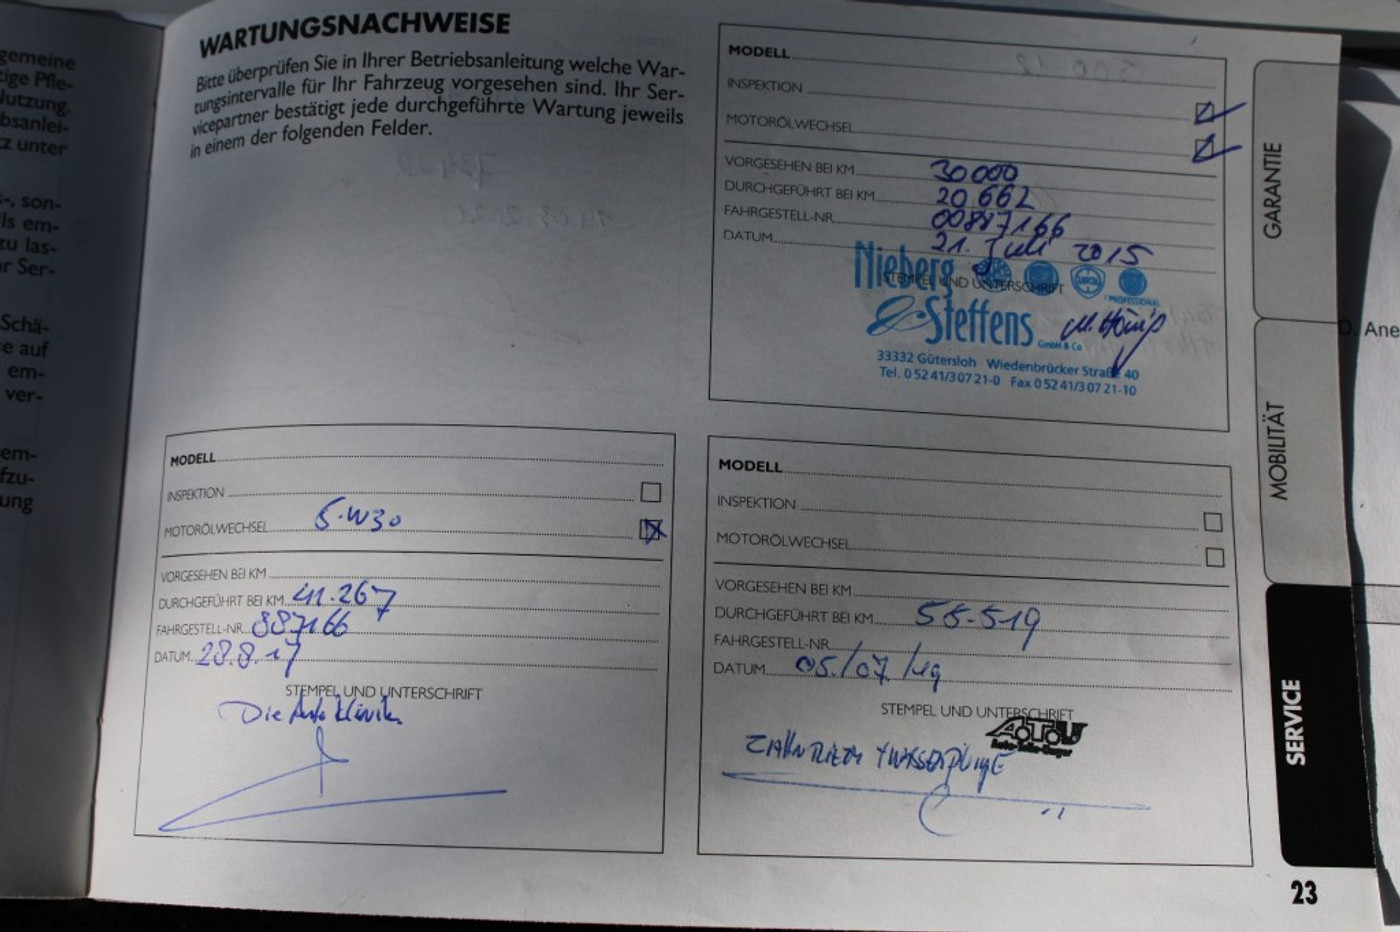 gemeine
tige Pfle-
Nutzung.
bsanlei-
tz unter
-, son-
ls em-
zu las-
r Ser-
Schä-
e auf
em-
ver-
em-
fzu-
ung
WARTUNGSNACHWEISE
Bitte überprüfen Sie in Ihrer Betriebsanleitung welche War-
tungsintervalle für Ihr Fahrzeug vorgesehen sind. Ihr Ser-
vicepartner bestätigt jede durchgeführte Wartung jeweils
in einem der folgenden Felder.
MODELL
INSPEKTION
MOTORÖLWECHSEL
VORGESEHEN BEI KM 30000
DURCHGEFÜHRT BEI KM 20662
FAHRGESTELL-NR. 00887166
DATUM 21. Juli 2015
STEMPEL UND UNTERSCHRIFT
Nieberg
PROFESSIONAL
& Steffens
GmbH & Co
33332 Gütersloh Wiedenbrücker Straße 40
Tel. 05241/30721-0 Fax 05241/30721-10
MODELL
INSPEKTION
MOTORÖLWECHSEL 5-W30
VORGESEHEN BEI KM
DURCHGEFÜHRT BEI KM 41.267
FAHRGESTELL-NR. 887166
DATUM 28.8.17
STEMPEL UND UNTERSCHRIFT
Die Autoklinik
MODELL
INSPEKTION
MOTORÖLWECHSEL
VORGESEHEN BEI KM
DURCHGEFÜHRT BEI KM 55.519
FAHRGESTELL-NR.
DATUM 05./07./19
STEMPEL UND UNTERSCHRIFT
A.T.U
Auto-Teile-Unger
GARANTIE
MOBILITÄT
SERVICE
D. Ane
23